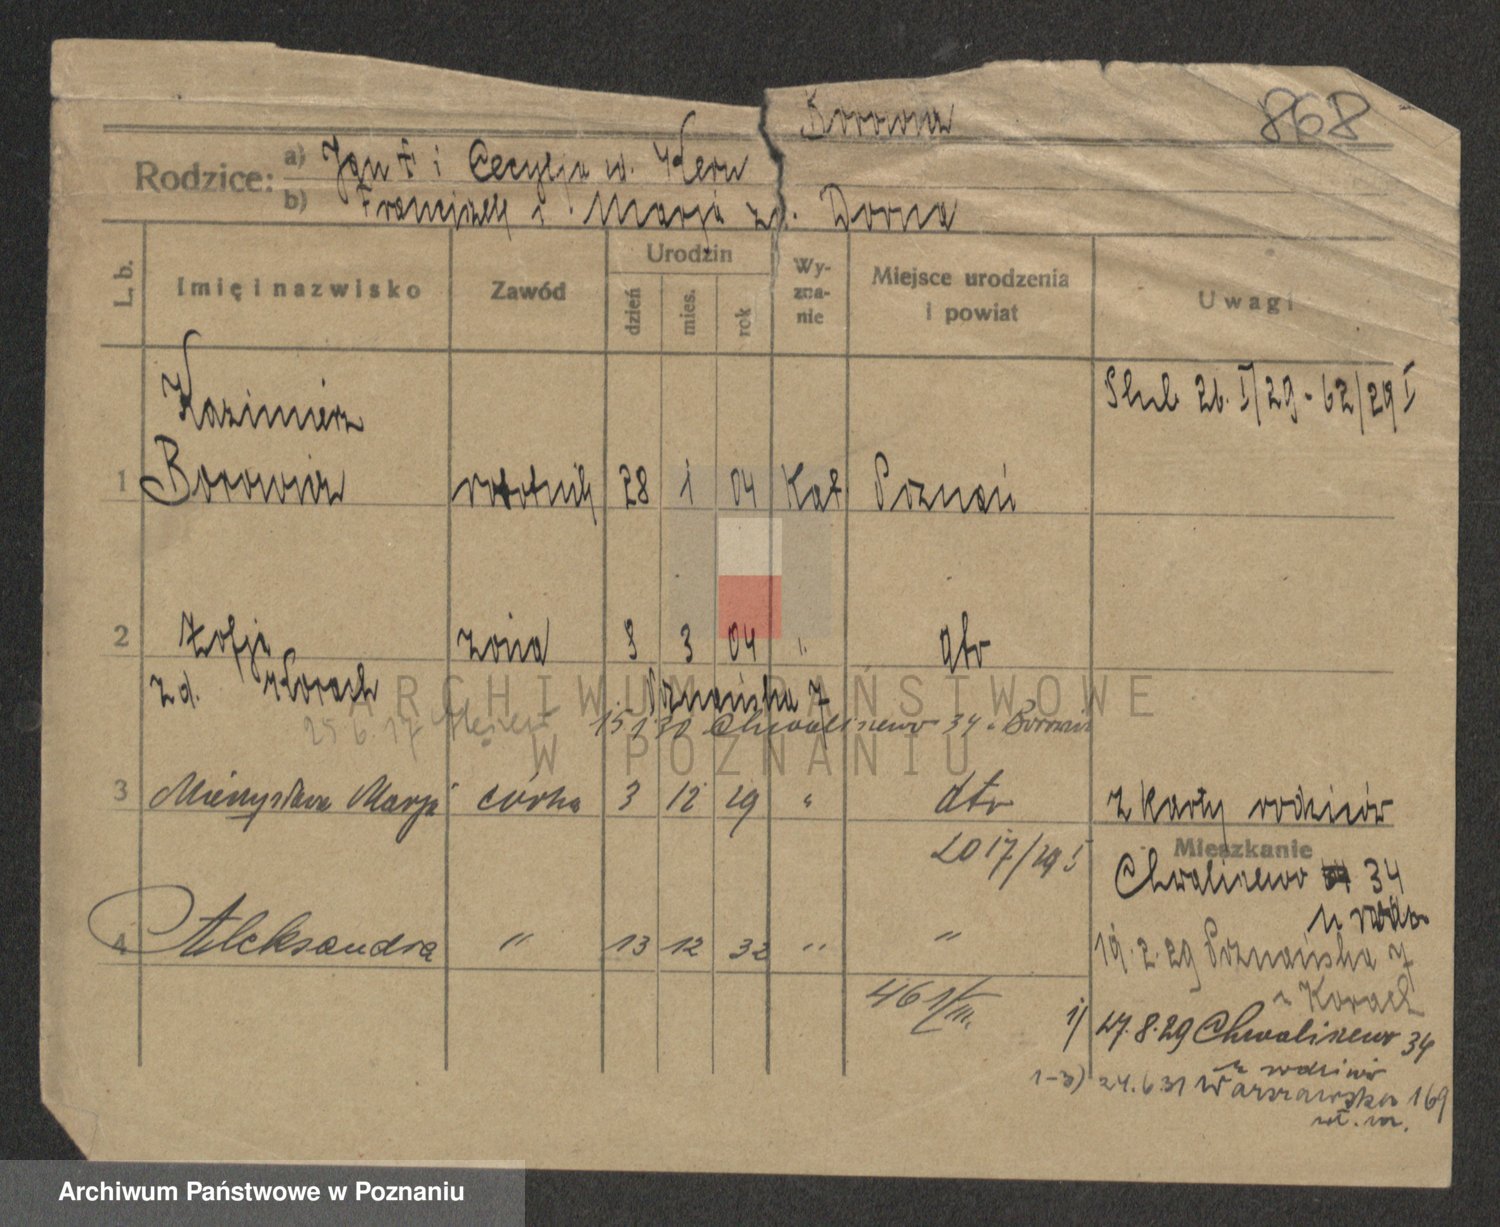 868
Rodzice: a) Jan † i Cecylja
b) Franciszek i Marja zd. Dorna
L. b. Imię i nazwisko Zawód Urodzin dzień mies. rok Wy-zna-nie Miejsce urodzenia i powiat Uwagi
Ślub 26. I/29 - 62/29 I
Kazimierz
1 Borowiak robotnik 28 1 04 Kat Poznań
2 Zofja żona 3 04 " dto
zd. Korach Poznańska 7
25 6. 15 1 30 Chwaliszewo 34
3 Mieczysława Marja córka 3 12 29 " dto z karty rodziców
2017/29 I
Mieszkanie
Chwaliszewo 34
4 Aleksandra " 13 12 32 " "
19. 2. 29 Poznańska 7
u Korach
461/III.
1) 27. 8. 29 Chwaliszewo 34
u rodziców
1-3) 24. 6 31 Warszawska 169
ARCHIWUM PAŃSTWOWE
W POZNANIU
Archiwum Państwowe w Poznaniu